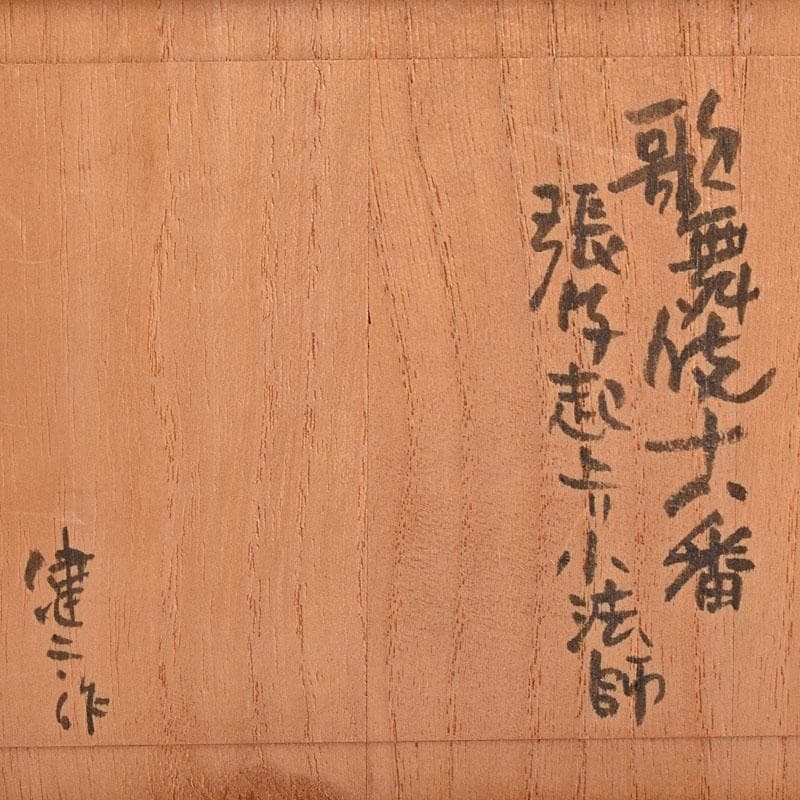 歌舞伎十八番
張子起上り小法師
健二作